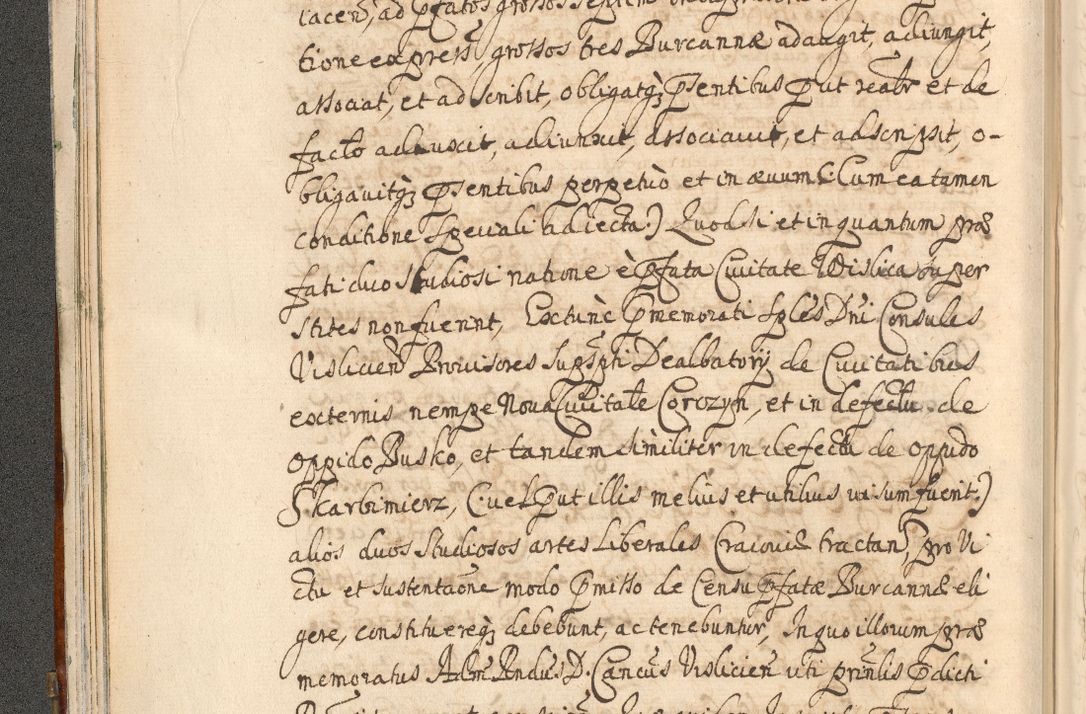 iacen, ad pfatos grossos septem
tione express, grossos tres Burcannæ adaugit, adiungit,
associat, et adscribit, obligatq; psentibus put realr et de
facto adauxit, adiunxit, associauit, et adscripsit, o-
bligauitq; psentibus perpetuò et in æuum (: Cum ea tamen
conditione speciali adiecta:) Quod si et in quantum præ
fati duo Studiosi natione è pfata Ciuitate Wislica super
stites non fuerint, Extunc pmemorati Sples Dni Consules
Vislicien Prouisores supspti Dealbatorij de Ciuitatibus
externis nempe Noua Ciuitate Corozyn, et in defectu de
oppido Busko, et tandem similiter in defectu de oppido
Skarbimierz, (: uel put illis melius et utilius uisum fuerit:)
alios duos Studiosos artes Liberales Cracouiæ tractan, pro Vi
ctu et sustentaone modo pmisso de Censu pfatæ Burcannæ eli
gere, constituereq; debebunt, ac tenebuntur, In quo illorum præ
memoratus Adm Rndus D. Cancus Vislicien uti prinlis pdicti